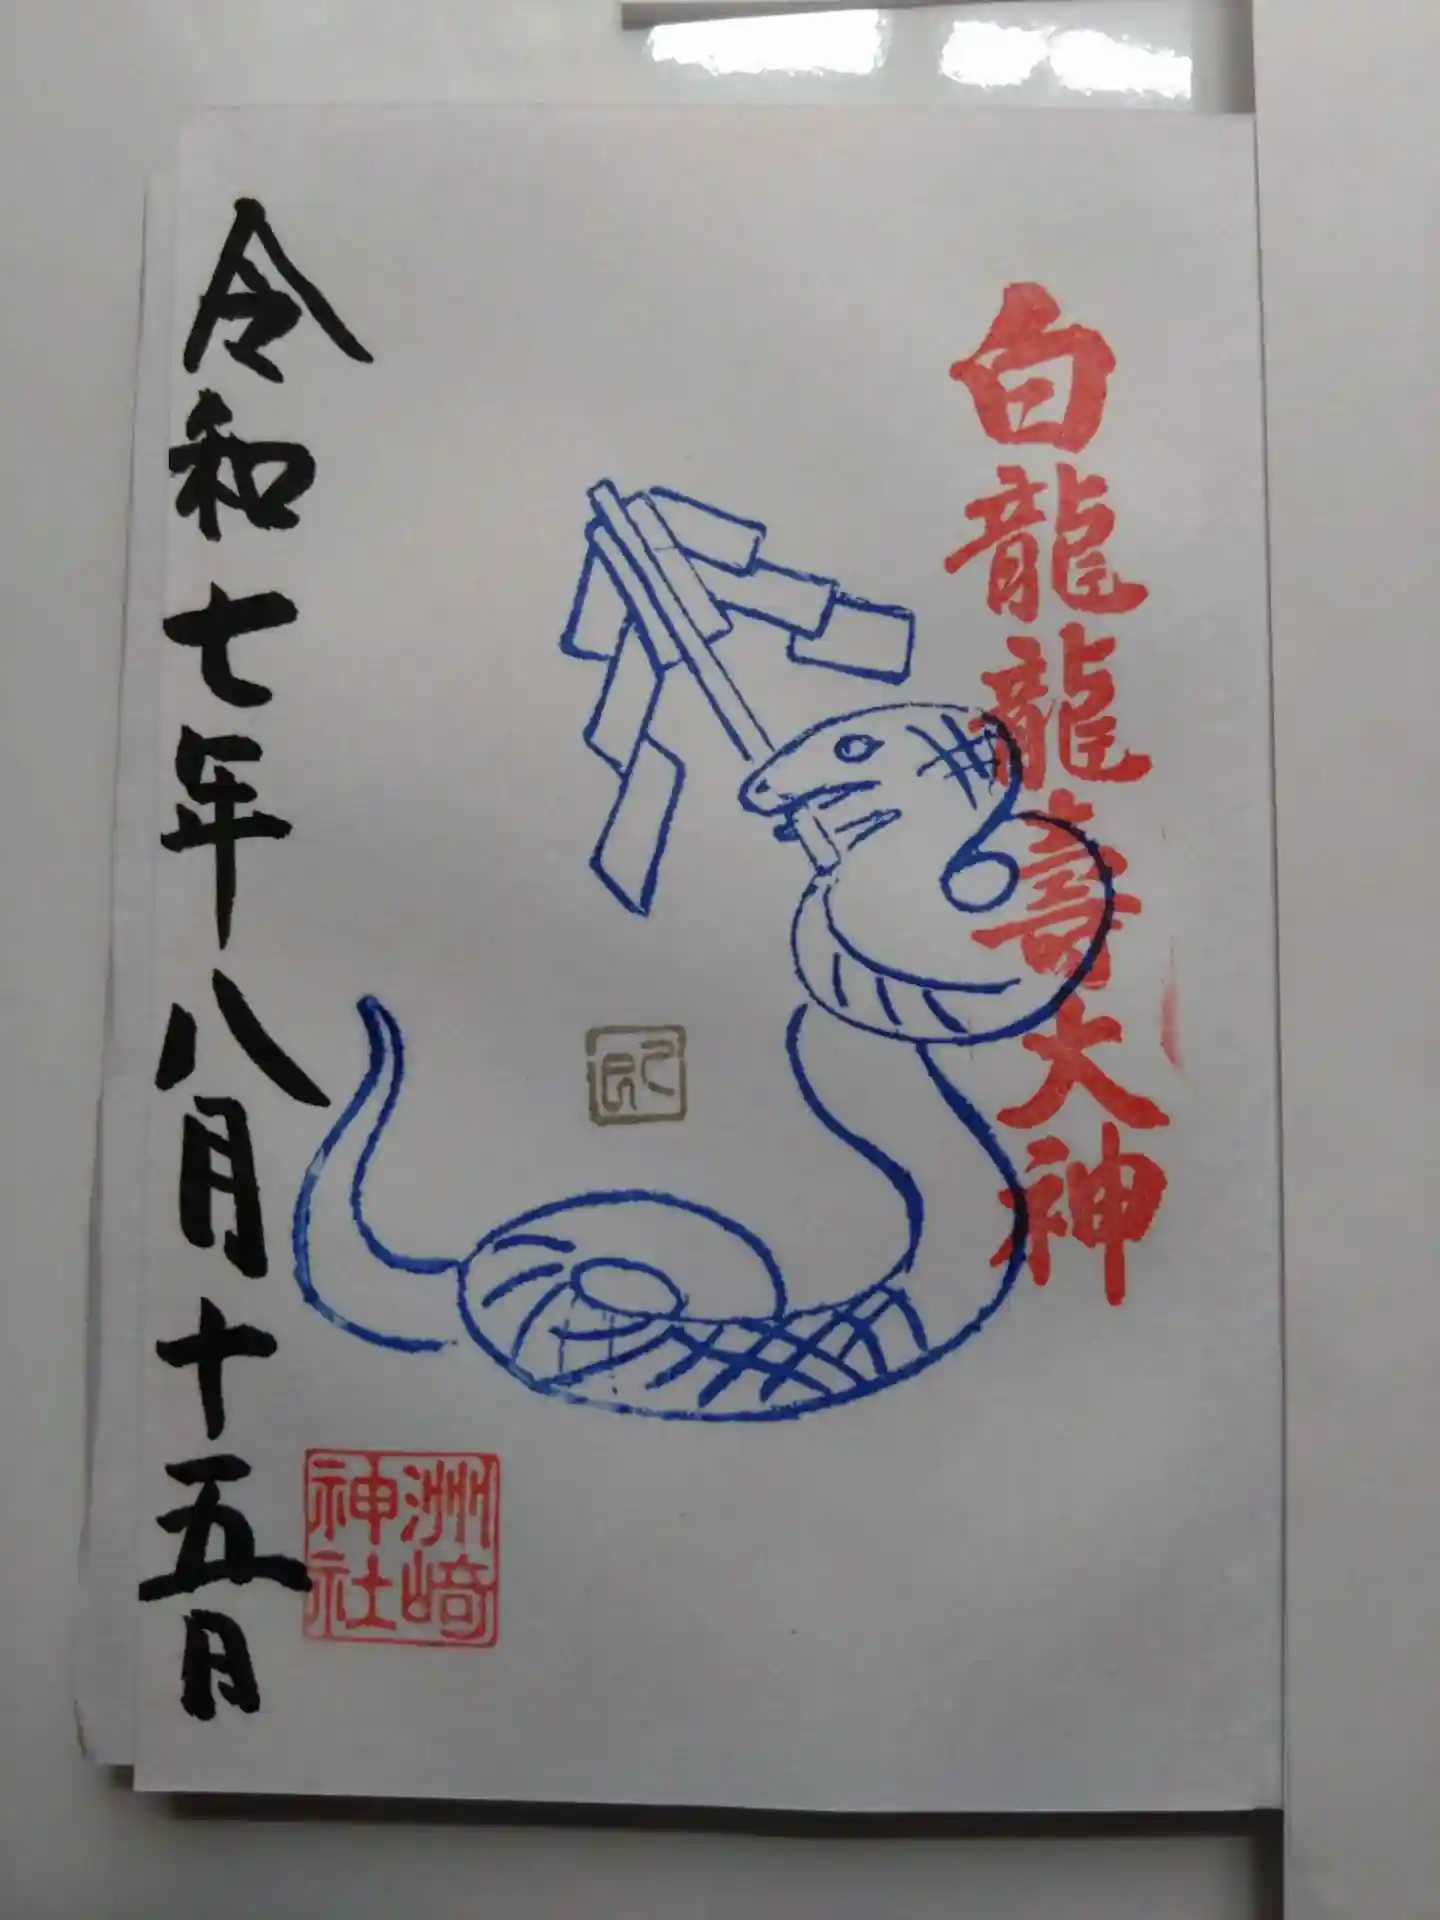 白龍龍壽大神
洲崎
神社
令和七年八月十五日